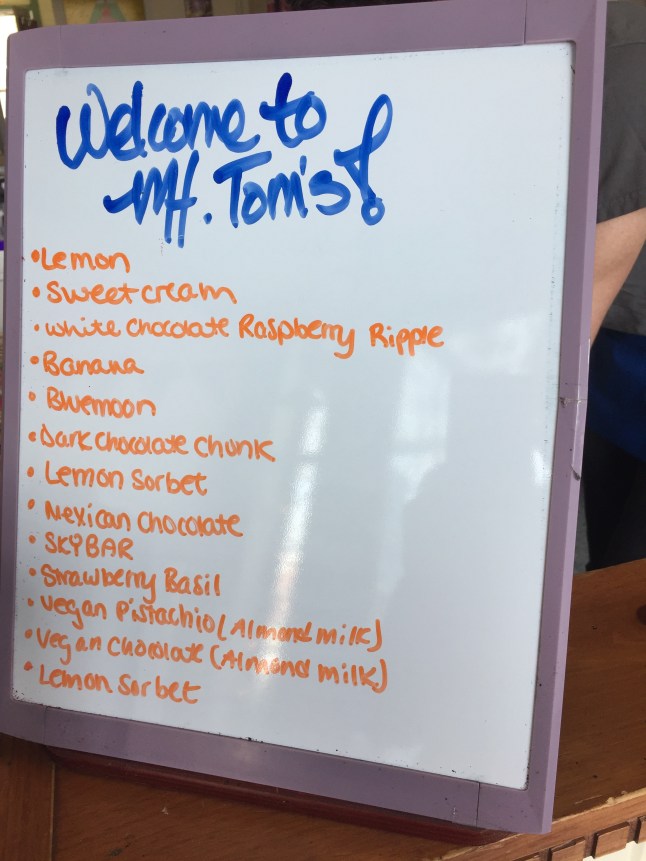 Welcome to
Mt. Tom's!
• Lemon
• Sweet cream
• White Chocolate Raspberry Ripple
• Banana
• Bluemoon
• Dark Chocolate Chunk
• Lemon Sorbet
• Mexican Chocolate
• SKYBAR
• Strawberry Basil
• Vegan Pistachio (Almond milk)
• Vegan Chocolate (Almond milk)
• Lemon Sorbet